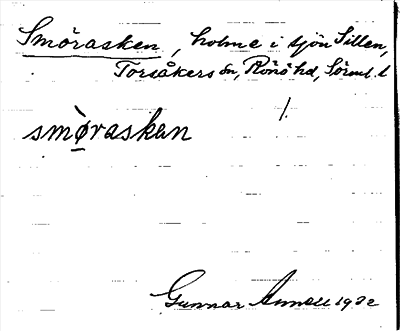 Smörasken, holme i sjön Sillen,
Torsåkers sn, Rönö hd, Sörml. l
/.
smörasken
Gunnar 1932